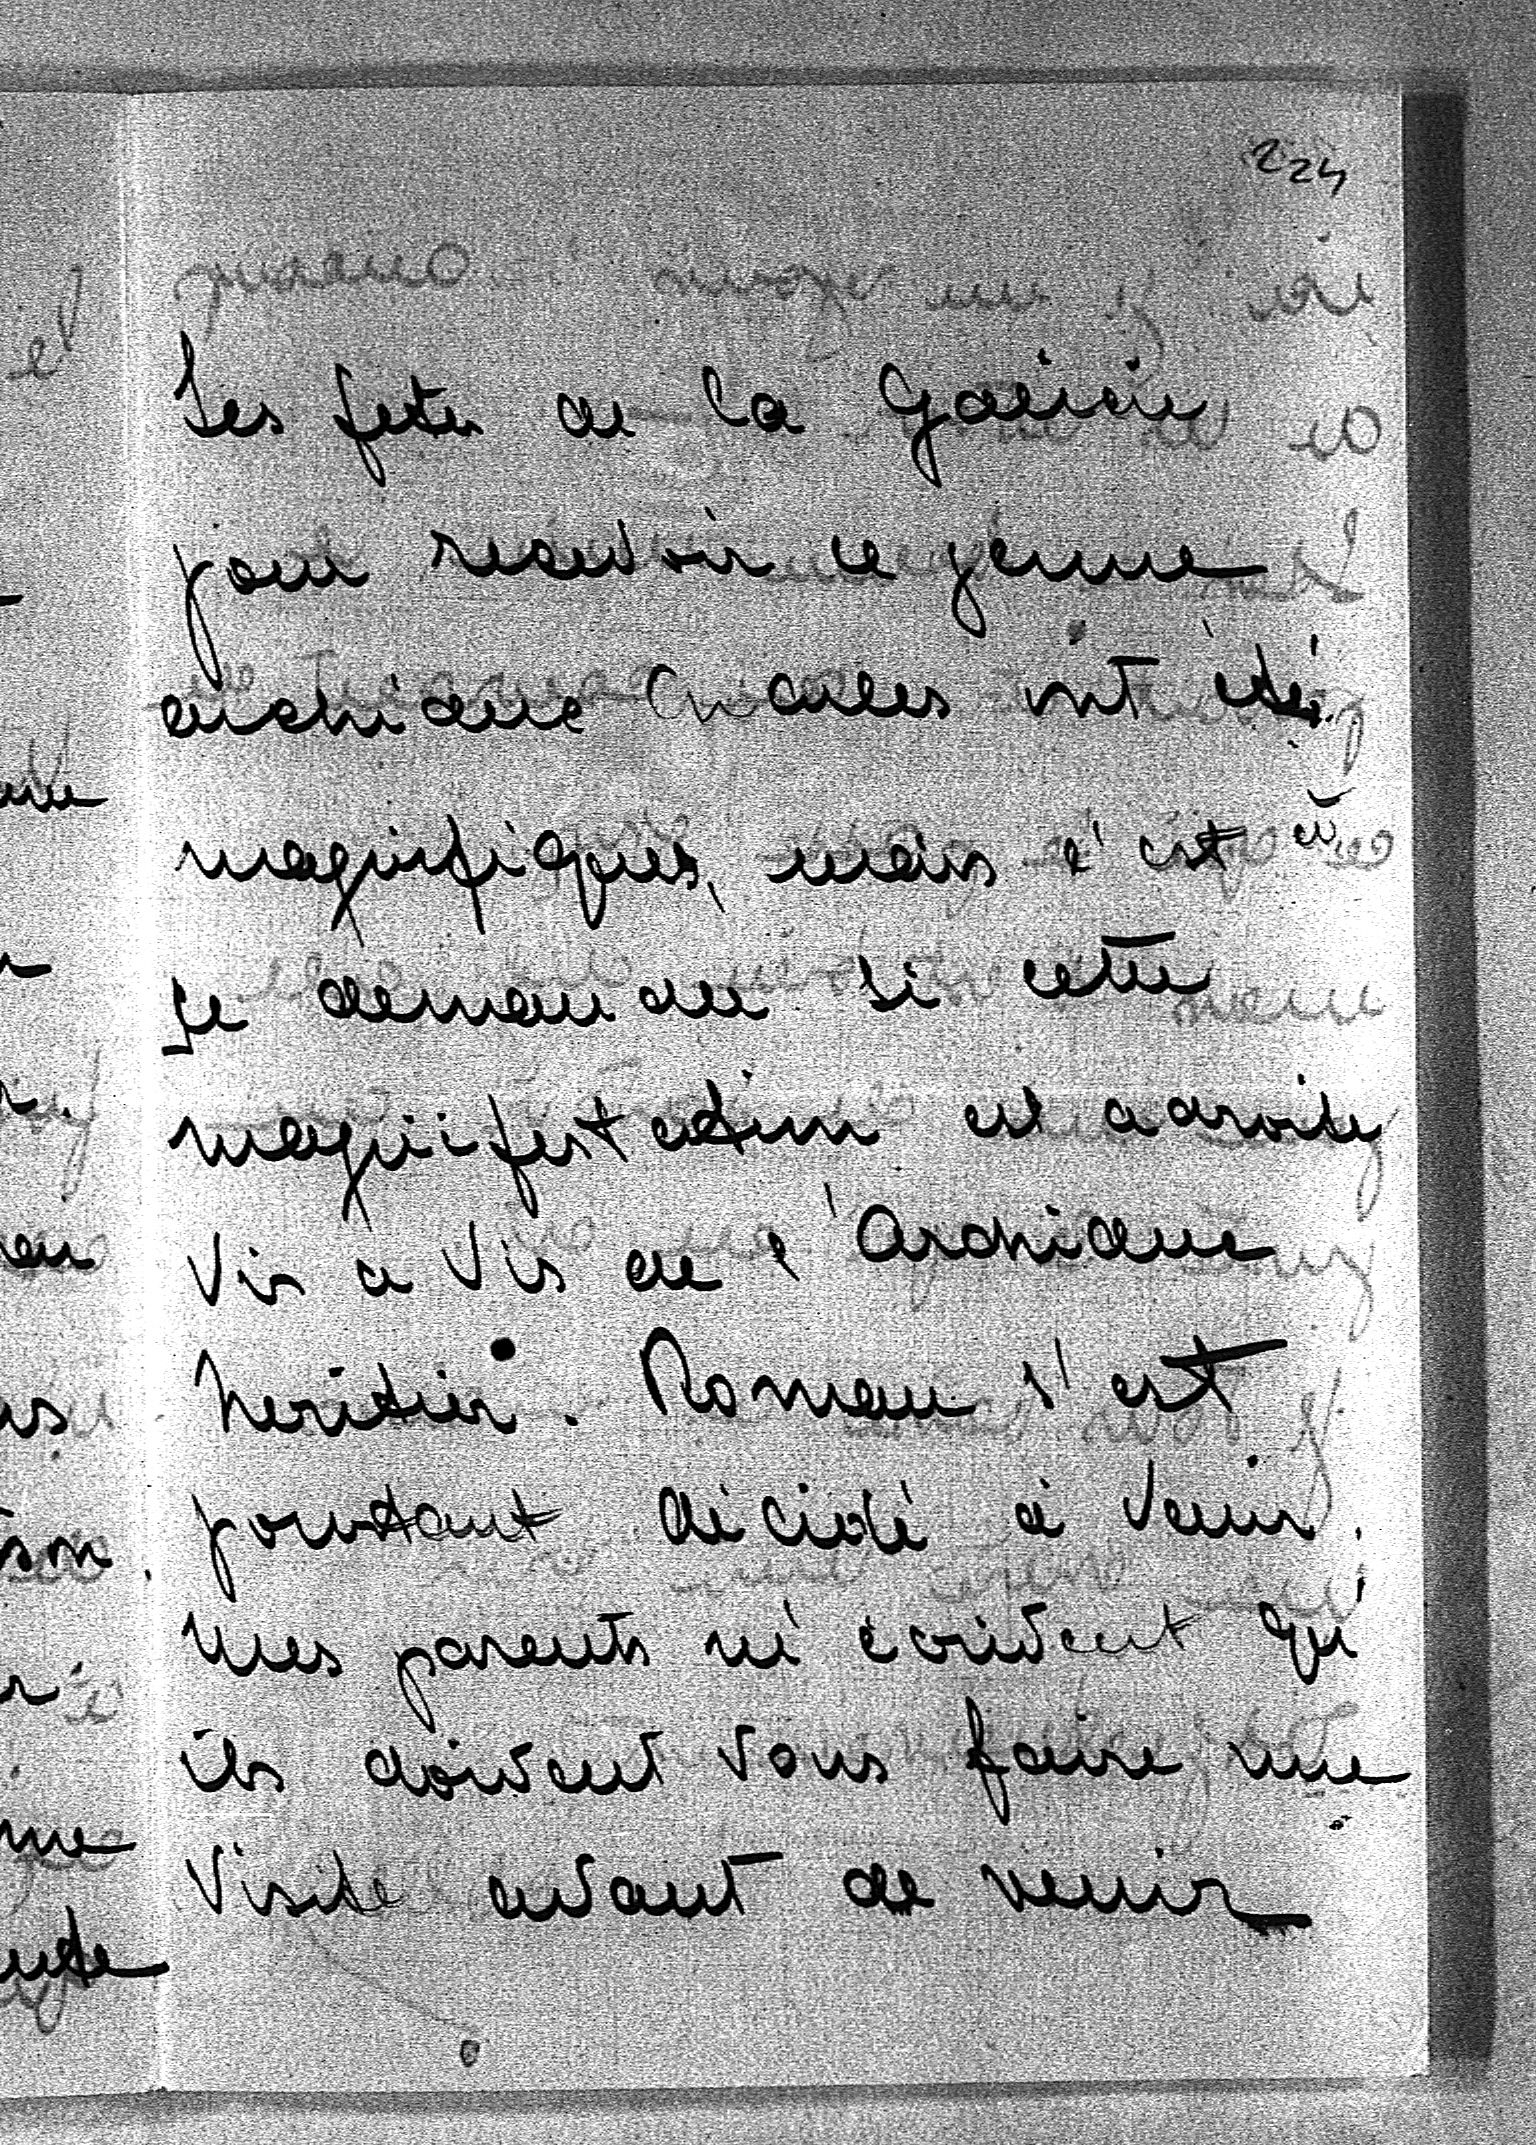 224
Les fetes de la Galicie
pour recevoir ce jeune
archiduc Charles ont été
magnifiques, mais c'est à
se demander si cette
magnifestation est adroite
vis à vis de l'Archiduc
heritier. Roman s'est
pourtant décidé à venir.
Mes parents m'écrivent qu'
ils doivent vous faire une
visite avant de venir